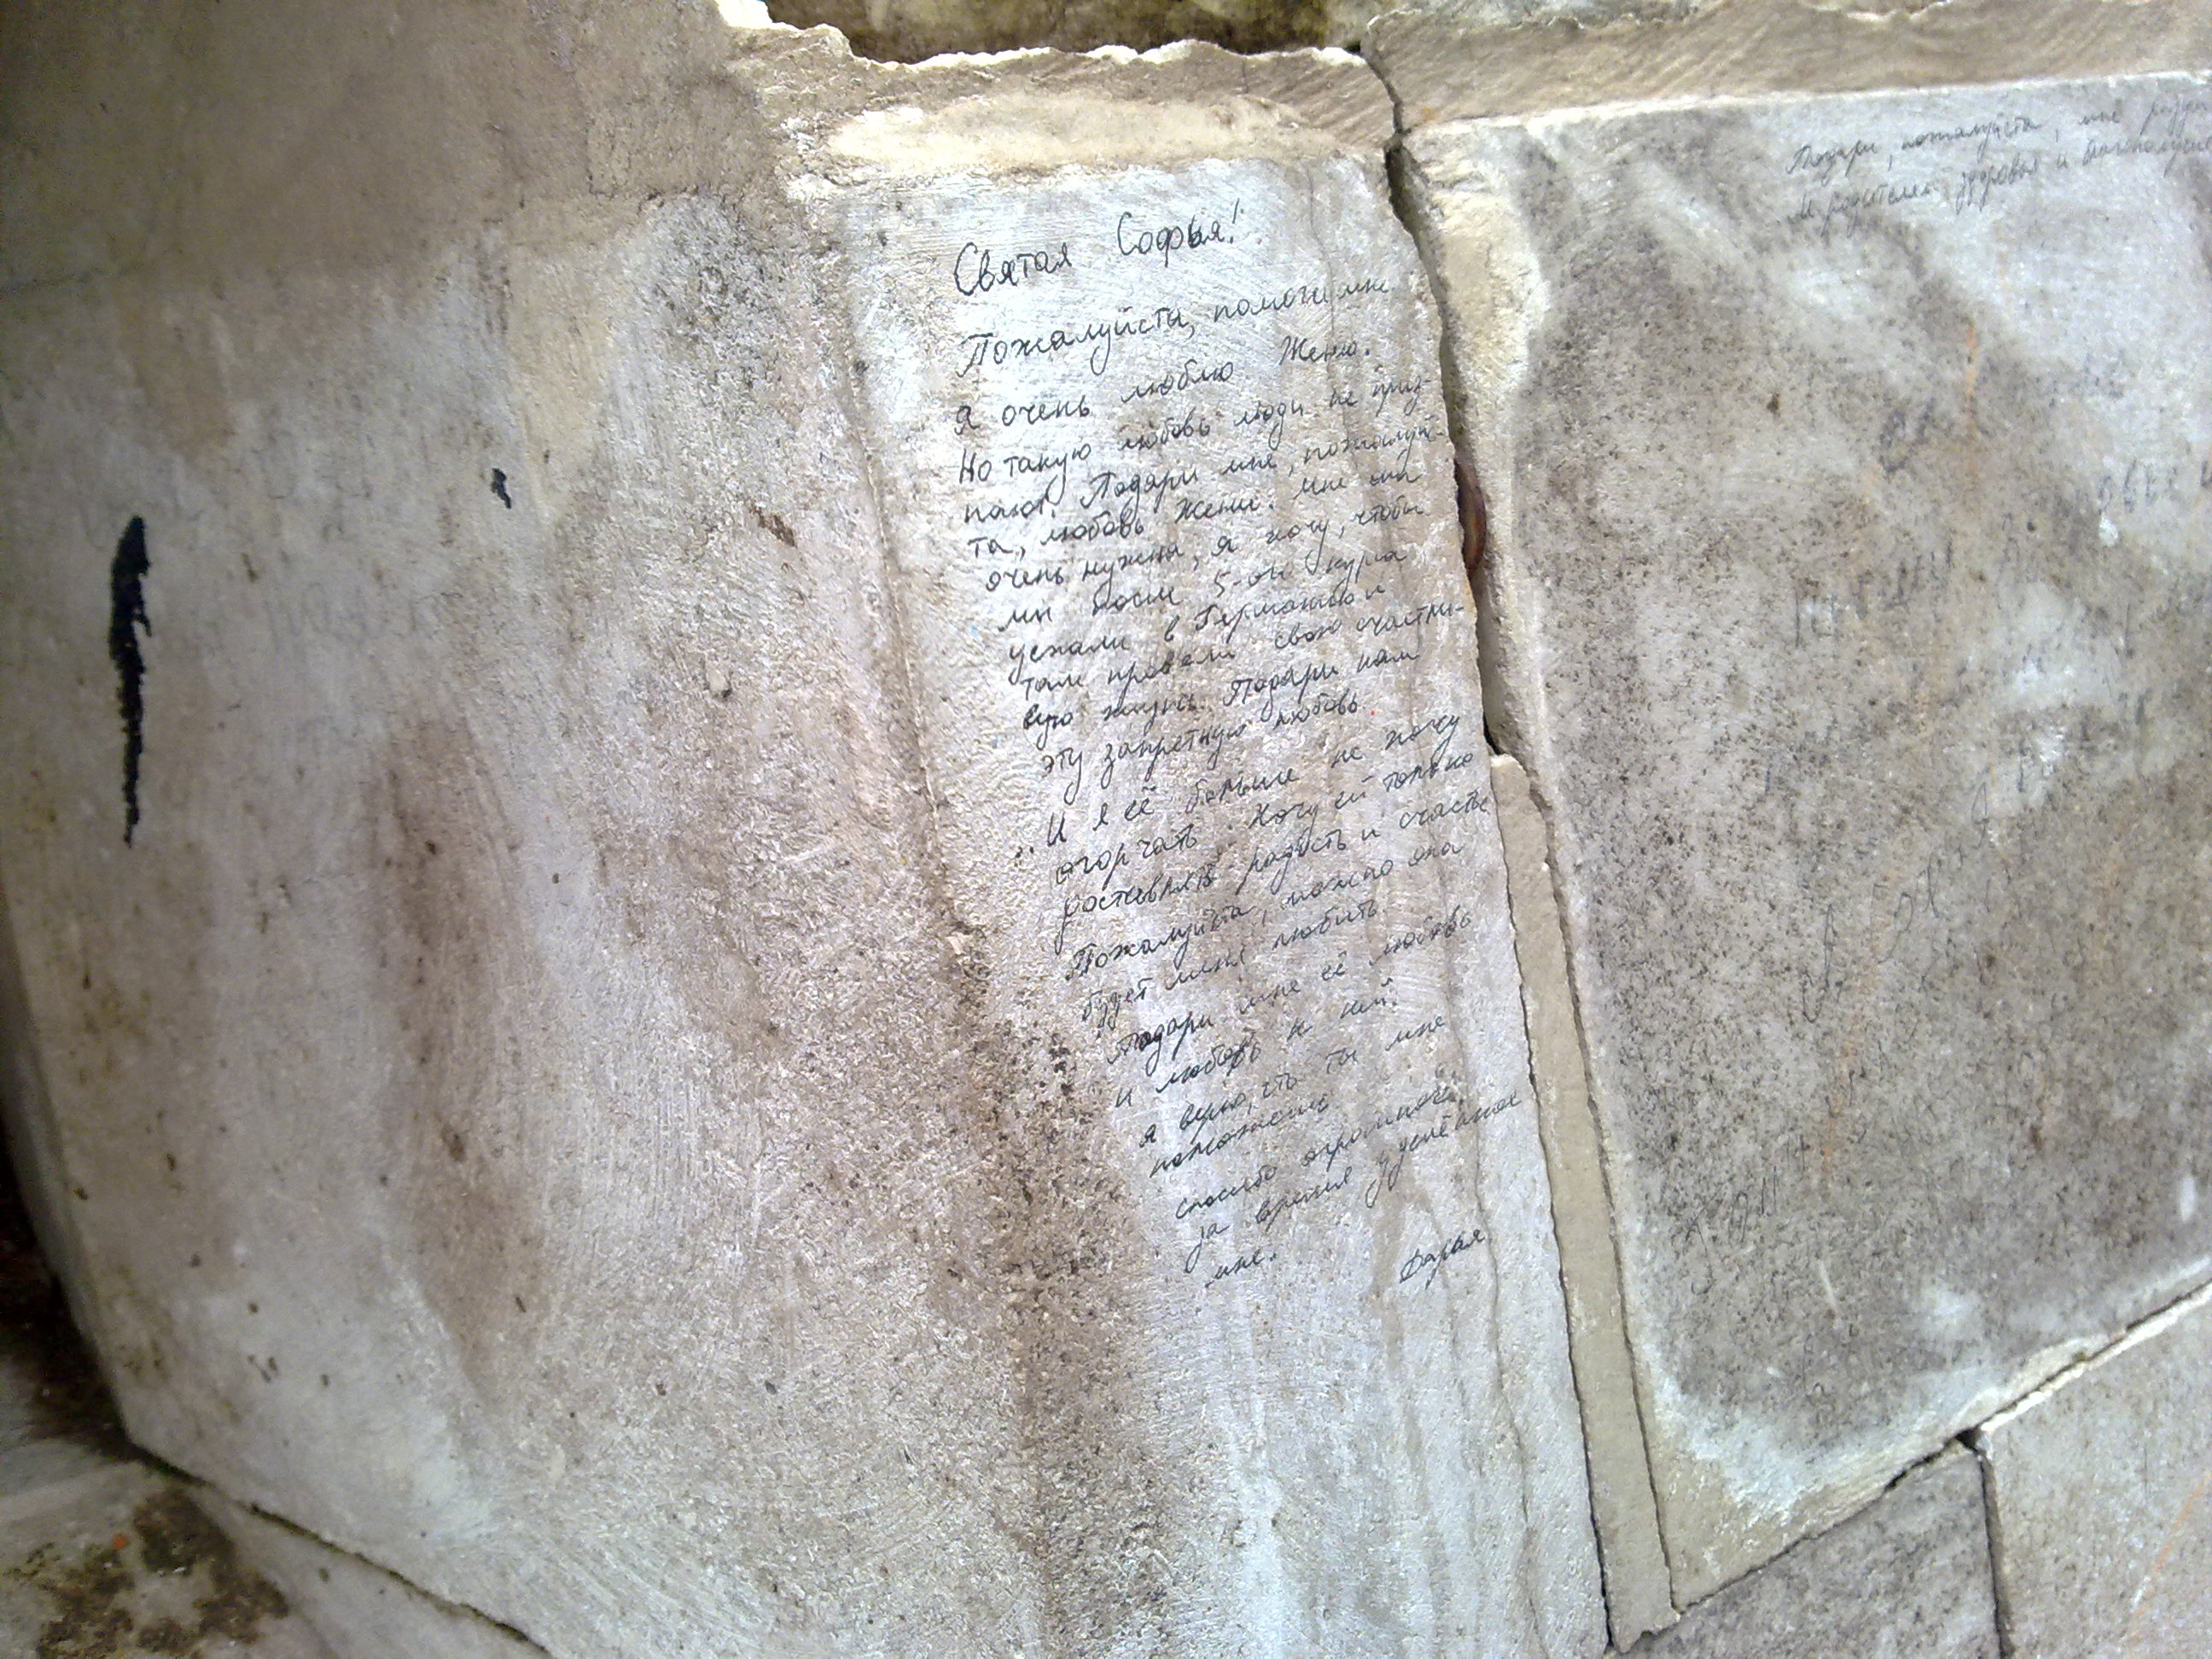 Святая Софья!
Пожалуйста, помоги мне.
Я очень люблю Женю.
Но такую любовь люди не приз-
нают. Подари мне, пожалуйс-
та, любовь Жени. Мне она
очень нужна, я хочу, чтобы
мы после 5-ого курса
уехали в Германию и
там провели свою счастли-
вую жизнь. Подари нам
эту запретную любовь.
И я её больше не хочу
огорчать. Хочу ей только
доставлять радость и счастье
Пожалуйста, можно она
будет меня любить.
Подари мне её любовь
и любовь к ней.
Я верю, что ты мне
поможешь.
Спасибо огромное,
за время уделённое
мне.
Дарья
Подари, пожалуйста, мне
И родителям здоровья и благополучие